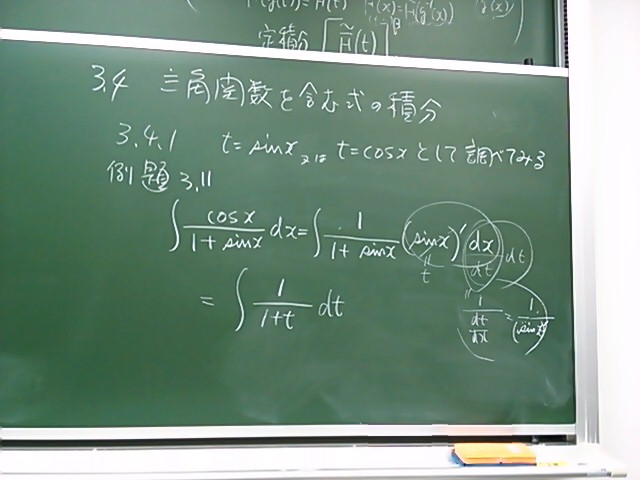 定積分 [H̃(t)]
3.4 三角関数を含む式の積分
3.4.1 t = sinx または t = cosx として調べてみる
例題 3.11
∫ cosx/(1+sinx) dx = ∫ 1/(1+sinx) (sinx)' dx/dt dt
= ∫ 1/(1+t) dt
‖ t
‖ 1/(dt/dx) = 1/(sinx)'